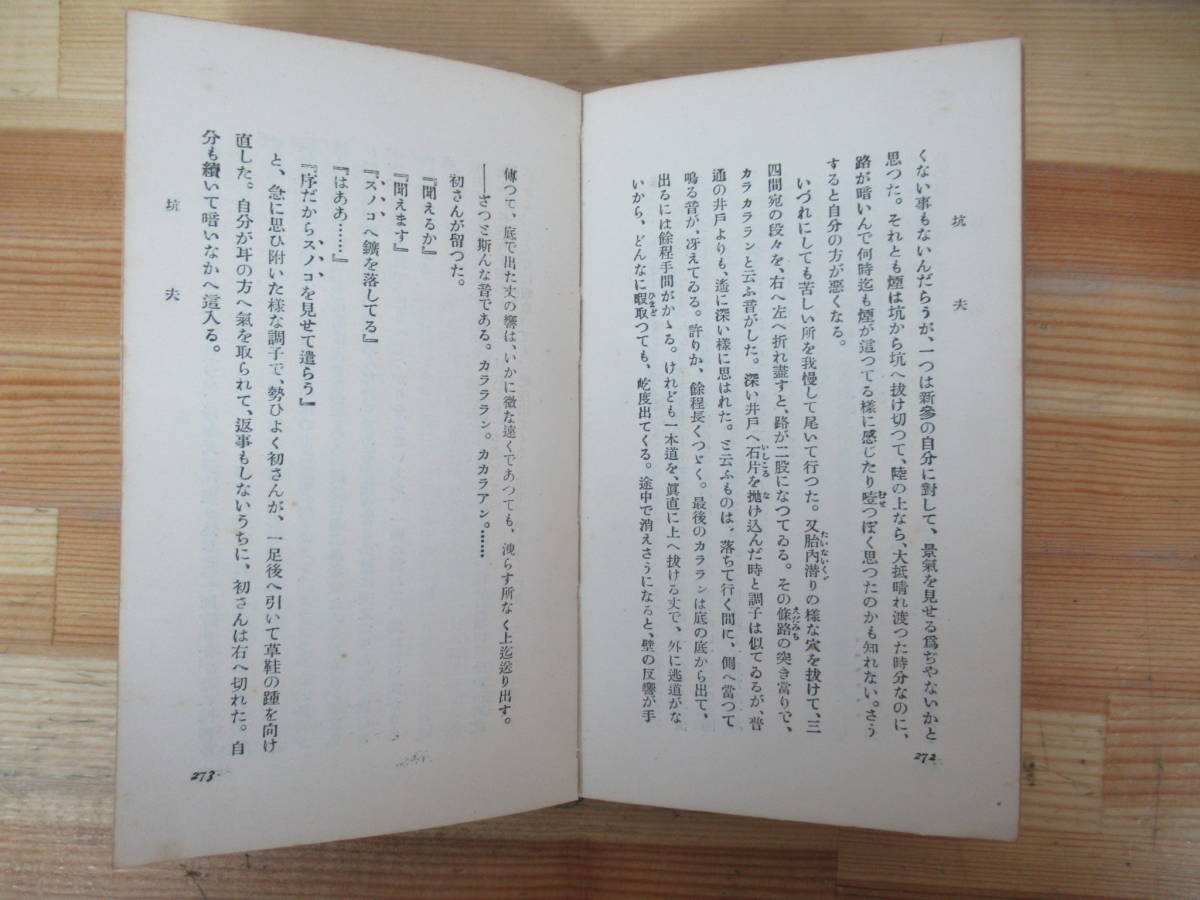 坑夫
くない事もないんだらうが、一つは新參の自分に對して、景氣を見せる爲ぢやないかと
思つた。それとも煙は坑から坑へ抜け切つて、陸の上なら、大抵晴れ渡つた時分なのに、
路が暗いんで何時迄も煙が這つてる樣に感じたり噎つぽく思つたのかも知れない。さう
すると自分の方が悪くなる。
いづれにしても苦しい所を我慢して尾いて行つた。又胎內潜りの樣な穴を抜けて、三
四間宛の段々を、右へ左へ折れ盡すと、路が二股になつてゐる。その條路の突き當りで、
カラカラランと云ふ音がした。深い井戸へ石片を抛げ込んだ時と調子は似てゐるが、普
通の井戸よりも、遙に深い樣に思はれた。と云ふものは、落ちて行く間に、側へ當つて
鳴る音が、冴えてゐる。許りか、餘程長くつゞく。最後のカラランは底の底から出て、
出るには餘程手間がかゝる。けれども一本道を、眞直に上へ抜ける丈で、外に逃道がな
いから、どんなに暇取つても、屹度出てくる。途中で消えさうになると、壁の反響が手
272
坑夫
傳つて、底で出た丈の響は、いかに微な遠くであつても、洩らす所なく上迄送り出す。
――ざつと斯んな音である。カラララン。カカラアン。……
初さんが留つた。
『聞えるか』
『聞えます』
『スノコへ鑛を落してる』
『はああ……』
『序だからスノコを見せて遣らう』
と、急に思ひ附いた樣な調子で、勢ひよく初さんが、一足後へ引いて草鞋の踵を向け
直した。自分が耳の方へ氣を取られて、返事もしないうちに、初さんは右へ切れた。自
分も續いて暗いなかへ這入る。
273